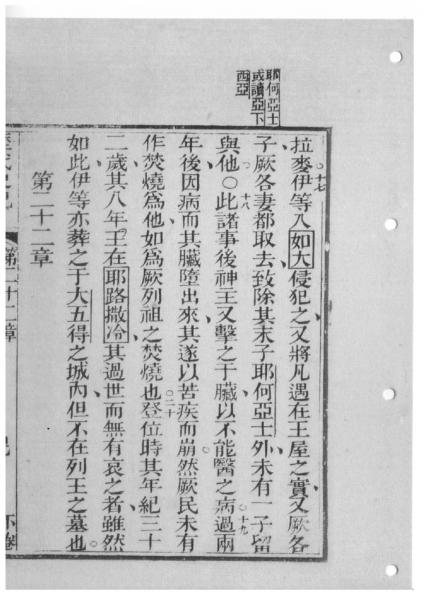 耶何亞士
或讀亞下
西亞
拉麥伊等入如大侵犯之又將凡遇在王屋之實又厥各
○十七
子厥各妻都取去致除其末子耶何亞士外未有一子留
與他○此諸事後神王又擊之于臟以不能醫之病過兩
十八
○十九
年後因病而其臟墮出來其遂以苦疾而崩然厥民未有
作焚燒為他如為厥列祖之焚燒也登位時其年紀三十
○二十
二歲其八年王在耶路撒冷其過世而無有哀之者雖然
如此伊等亦葬之于大五得之城內但不在列王之墓也
第二十二章
第二十二章
下卷